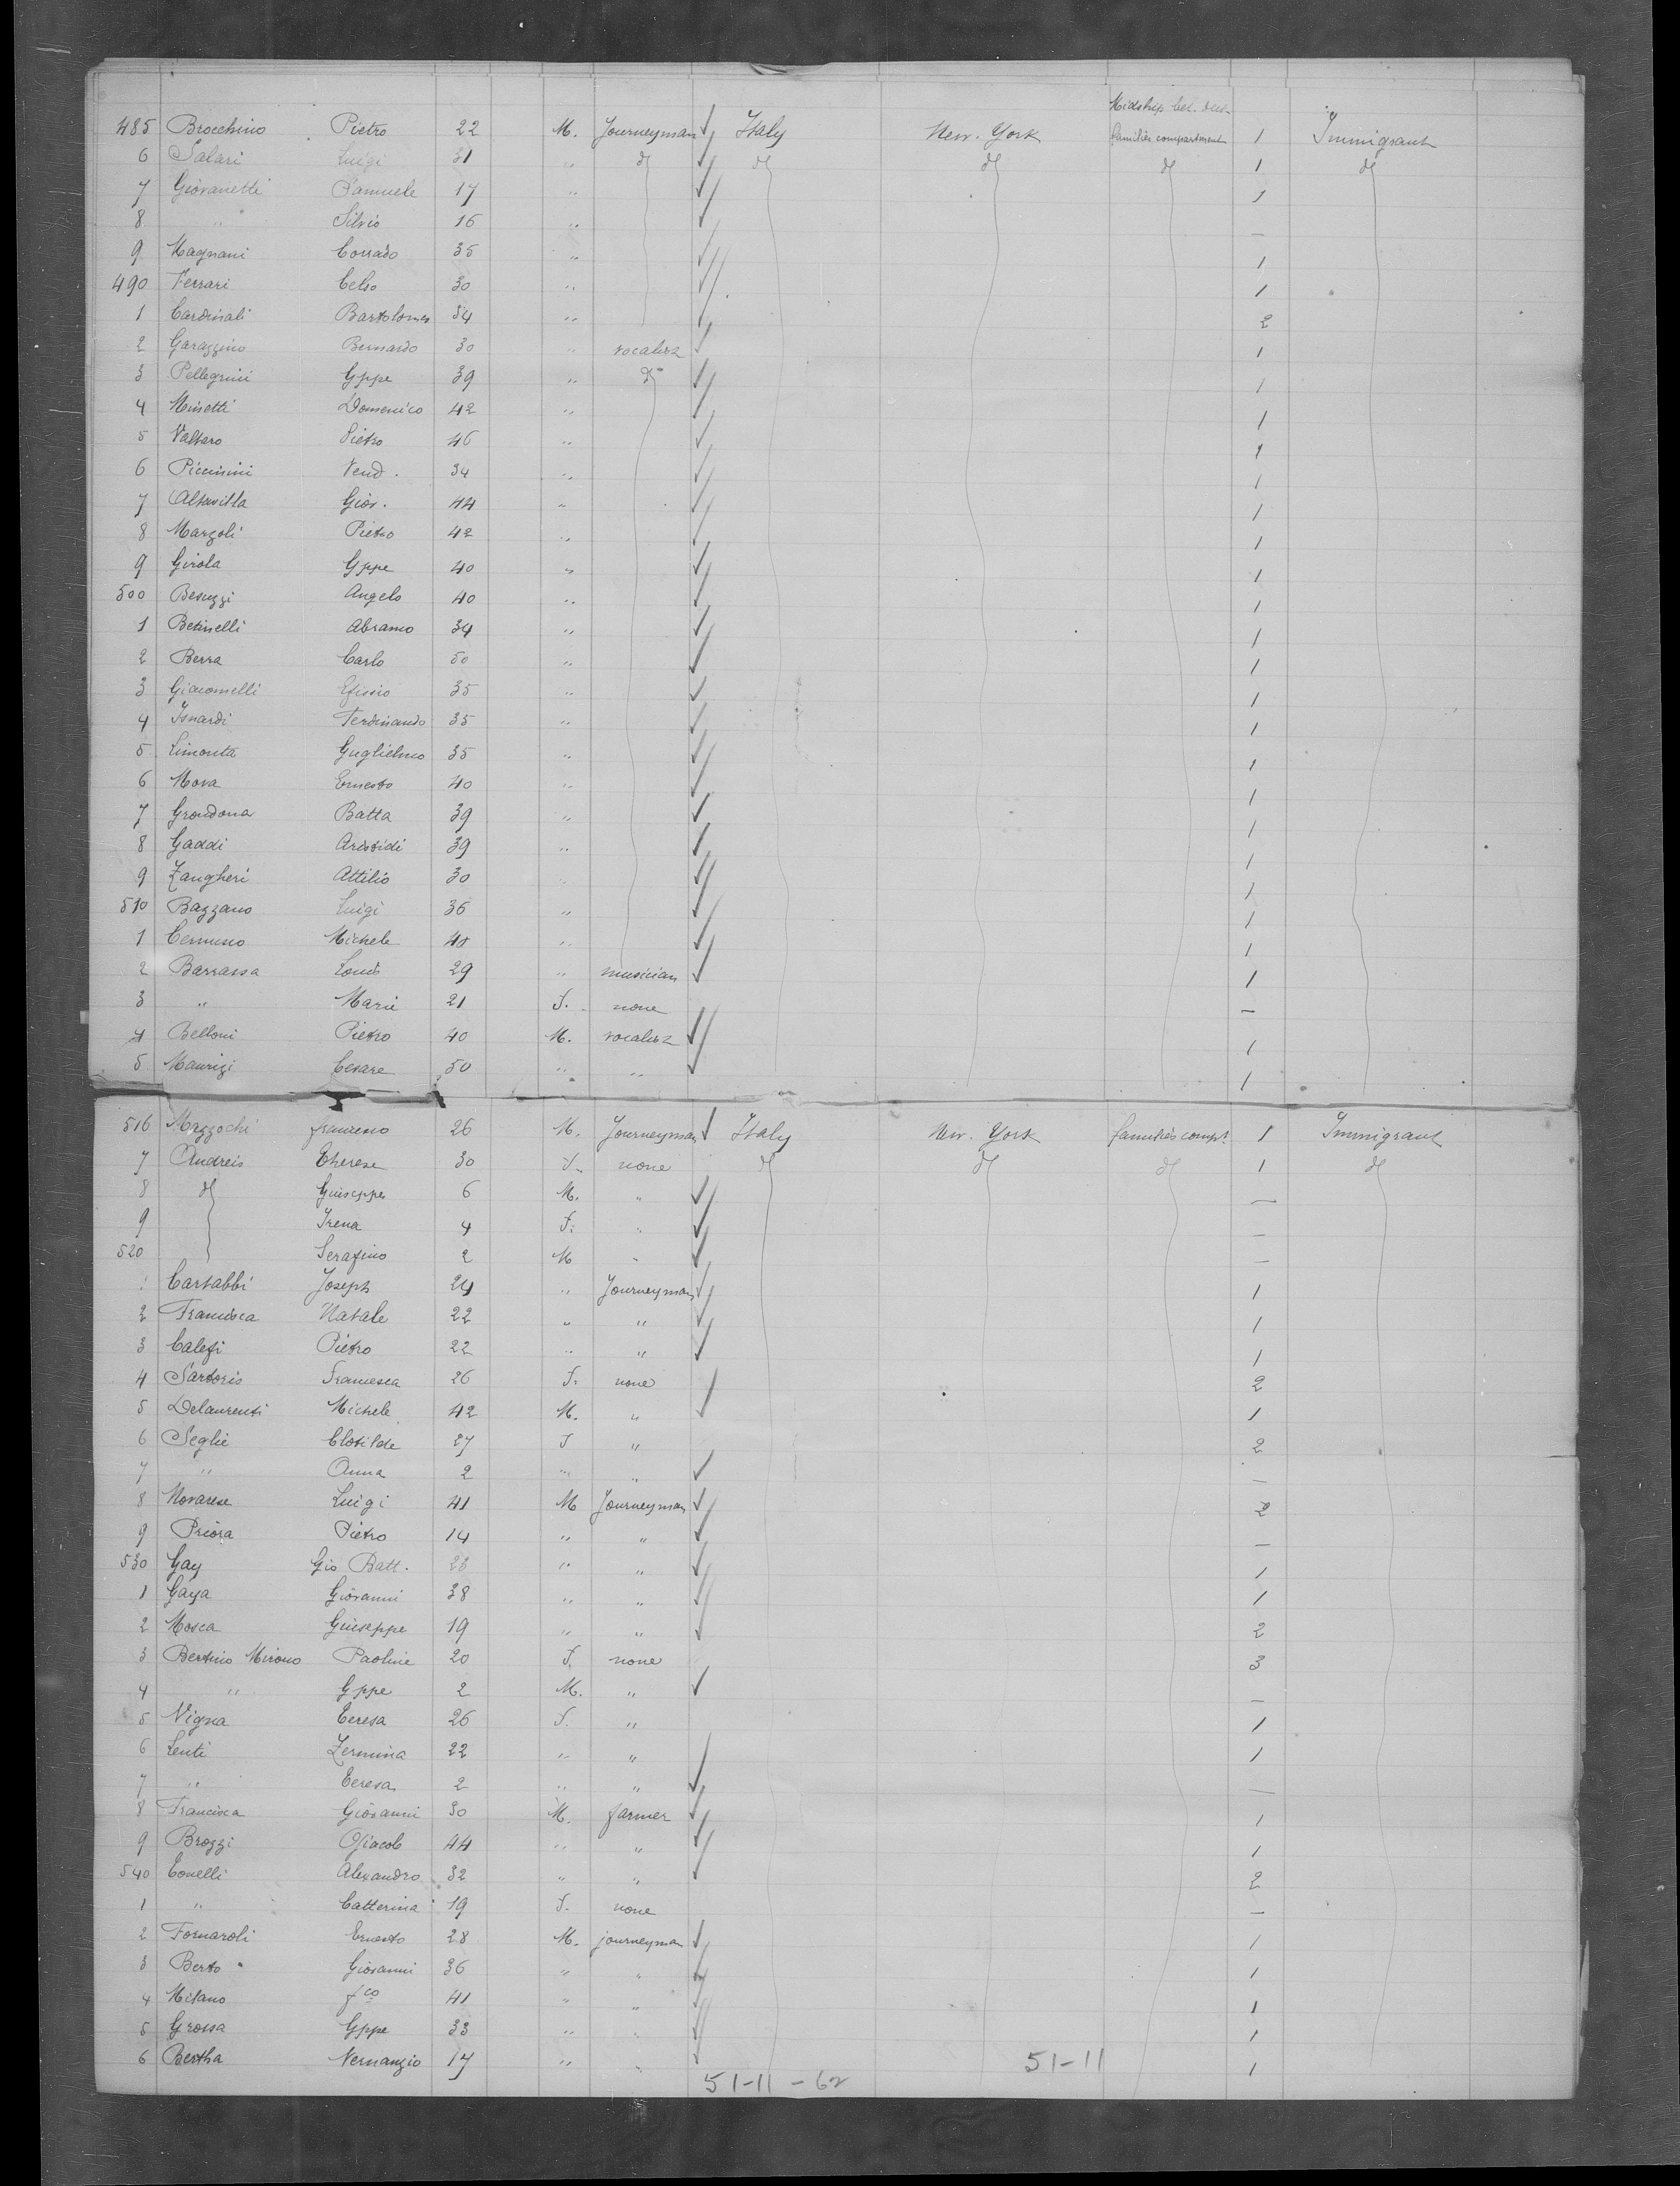 Midship bet. deck
485 Brocchino Pietro 22 M. Journeyman Italy New. York families compartment 1 Immigrant
6 Salari Luigi 31 " do do do do 1 do
7 Giovanetti Samuele 17 " 1
8 " Silvio 16 " —
9 Magnani Corrado 35 " 1
490 Ferrari Celso 30 " 1
1 Cardinali Bartolomeo 54 " 2
2 Garazzino Bernardo 30 " vocalist 1
3 Pellegrini Gppe 39 " do 1
4 Minetti Domenico 42 " 1
5 Valtaro Pietro 46 " 1
6 Piccinini Vend. 34 " 1
7 Altavilla Giov. 44 " 1
8 Marzoli Pietro 42 " 1
9 Girola Gppe 40 " 1
500 Besuzzi Angelo 40 " 1
1 Betinelli Abramo 34 " 1
2 Berra Carlo 50 " 1
3 Giacomelli Efisio 35 " 1
4 Isnardi Ferdinando 35 " 1
5 Limonta Guglielmo 35 " 1
6 Mova Ernesto 40 " 1
7 Grondona Batta 39 " 1
8 Gaddi Aristidi 39 " 1
9 Zangheri Attilio 30 " 1
510 Bazzano Luigi 36 " 1
1 Cernuno Michele 40 " 1
2 Barrassa Louis 29 " musician 1
3 " Marie 21 F. none —
4 Belloni Pietro 40 M. vocalist 1
5 Maurizi Cesare 50 " " 1
516 Mazzochi francesco 26 M. Journeyman Italy New. York families compt 1 Immigrant
7 Andreis Therese 30 F. none do do do 1 do
8 do Guiseppe 6 M. " —
9 Irena 4 F. " —
520 Serafino 2 M " —
1 Carsabbi Joseph 24 " Journeyman 1
2 Francisca Natale 22 " " 1
3 Calefi Pietro 22 " " 1
4 Sartoris Francesca 26 F. none 2
5 Delaurenti Michele 42 M. " 1
6 Seglie Clotilde 27 F " 2
7 " Anna 2 " " —
8 Novarese Luigi 41 M Journeyman 2
9 Priora Pietro 14 " " —
530 Gay Gio Batt. 23 " " 1
1 Gaya Giovanni 38 " " 1
2 Mosca Guiseppe 19 " " 2
3 Bertino Mirono Paoline 20 F. none 3
4 " Gppe 2 M. " —
5 Vigna Teresa 26 F. " 1
6 Lenti Zermina 22 " " 1
7 " Teresa 2 " " —
8 Francisca Giovanni 30 M. farmer 1
9 Brozzi Giacob 44 " " 1
540 Tonelli Alexandro 32 " " 2
1 " Catterina 19 F. none —
2 Fornaroli Ernesto 28 M. journeyman 1
3 Berto Giovanni 36 " " 1
4 Milano fco 41 " " 1
5 Grossa Gppe 33 " " 1
6 Bertha Vernanzio 17 " " 1
51-11-62 51-11